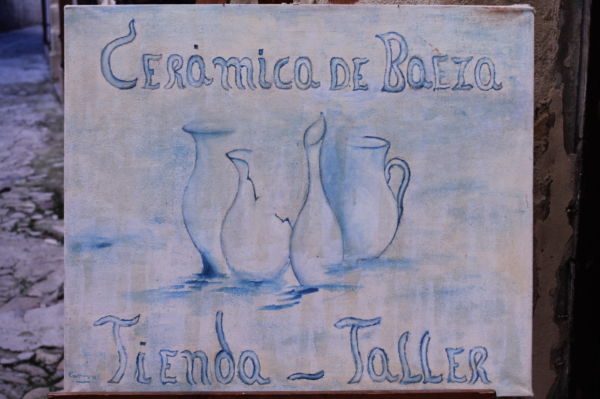 Cerámica de Baeza
Tienda - Taller